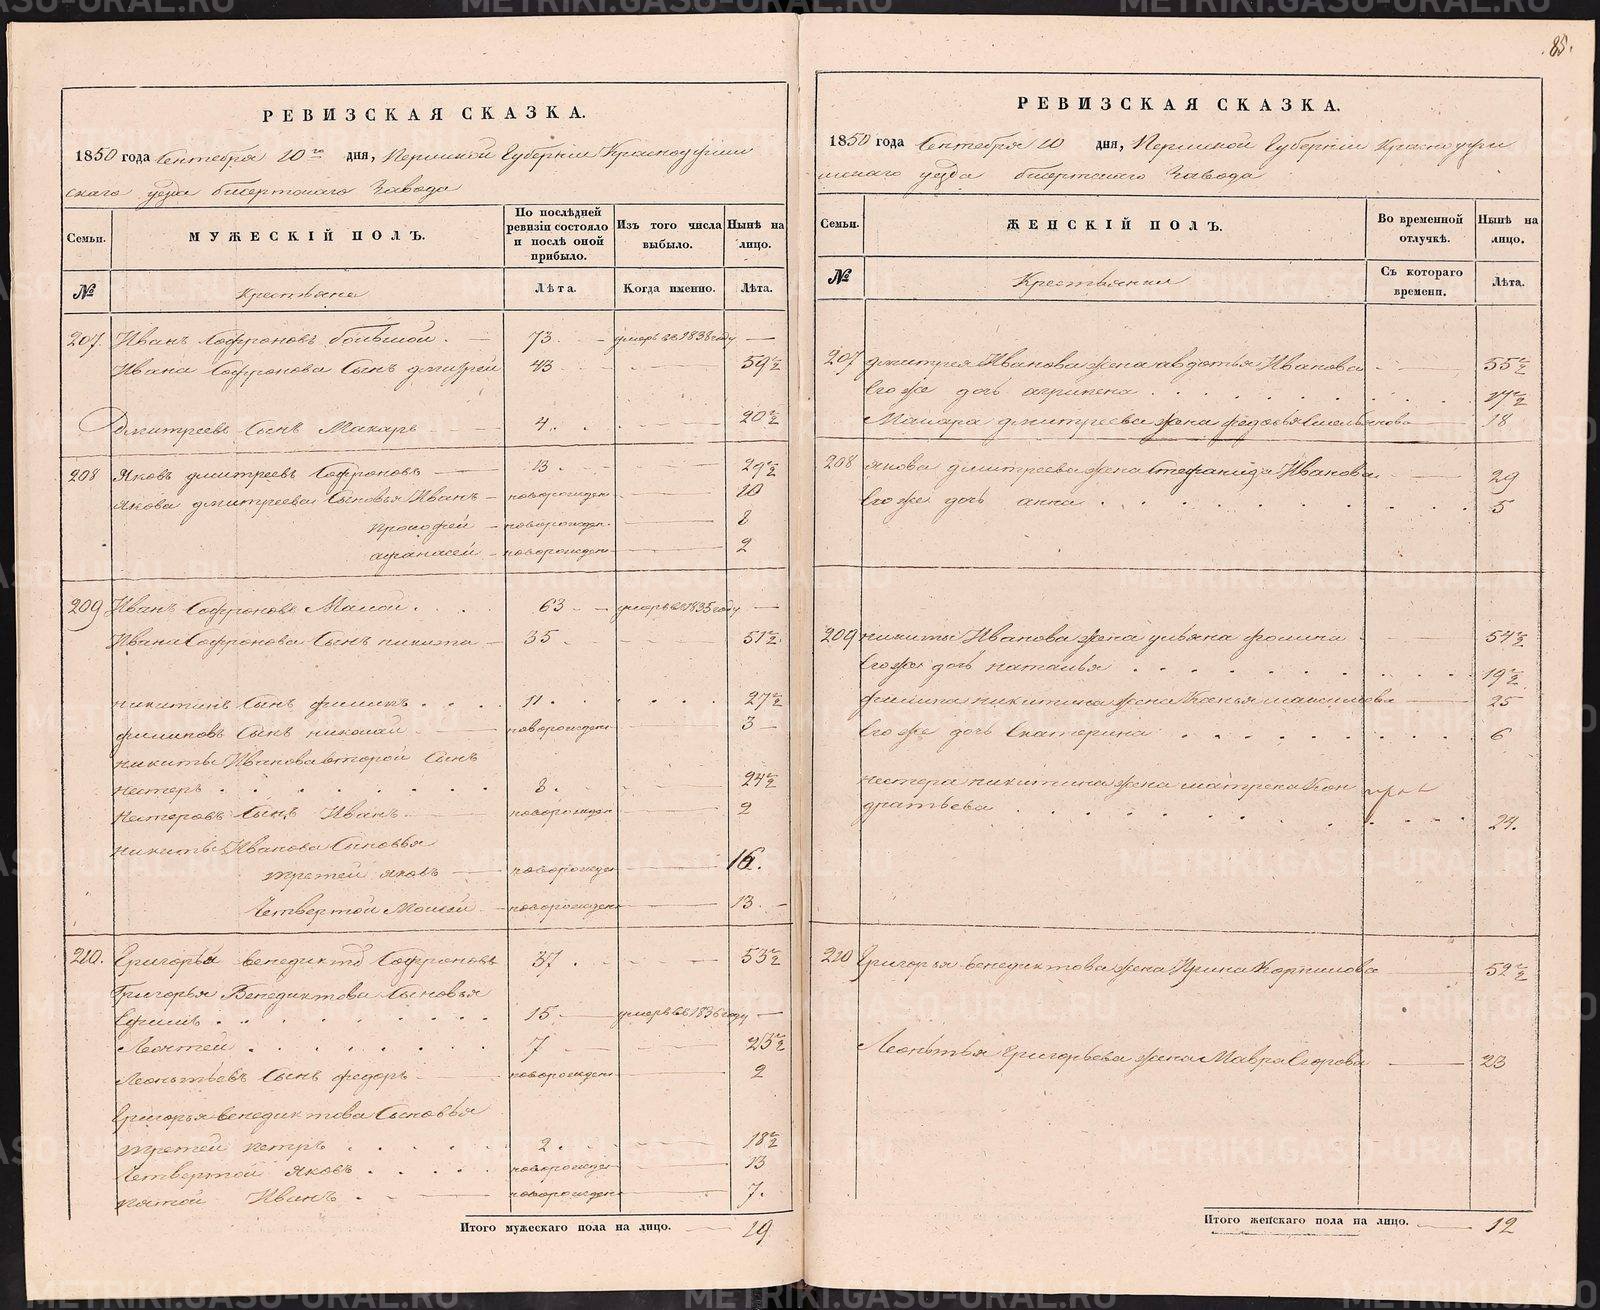 85.
РЕВИЗСКАЯ СКАЗКА.
1850 года Сентября 10го дня, Пермской Губернiи Красноуфим
скаго уезда бисертскаго Завода
Семьи.
МУЖЕСКIЙ ПОЛЪ.
По послѣдней ревизiи состояло и послѣ оной прибыло.
Изъ того числа выбыло.
Нынѣ на лицо.
№
Крестьяне
Лѣта.
Когда именно.
Лѣта.
207. Иванъ Софроновъ большой. 73 умеръ въ 1838 году
Ивана Софронова Сынъ дмитрей 43 59 ½
Дмитреевъ Сынъ Макаръ 4. 20 ½
208 Яковъ дмитреевъ Софроновъ 13. 29 ½
Якова дмитреева Сыновья Иванъ новорожден 10
прокофей новорожден. 8
афанасей новорожден 2
209 Иванъ Софроновъ Малой. 63 умеръ въ 1835 году
Ивана Софронова Сынъ никита 35 51 ½
никитинъ Сынъ филипъ 11. 27 ½
филиповъ Сынъ николай новорожден 3
никиты Иванова второй Сынъ
нестеръ 8. 24 ½
нестеровъ Сынъ Иванъ новорожден 2
никиты Иванова Сыновья
третей яковъ новорожден 16.
Четвертой Моисей новорожден 13.
210. Григорья венедиктов Софроновъ 37. 53 ½
Григорья Венедиктова Сыновья
Ефимъ 15 умеръ въ 1836 году
Леонтей 7 23 ½
Леонтьевъ Сынъ федоръ новорожден 2
Григорья венедиктова Сыновья
третей петръ 2. 18 ½
Четвертой яковъ новорожден 13
пятой Иванъ новорожден 7.
Итого мужескаго пола на лицо. 19
РЕВИЗСКАЯ СКАЗКА.
1850 года Сентября 10 дня, Пермской Губернiи Красноуфи
мскаго уезда бисертскаго Завода
Семьи.
ЖЕНСКIЙ ПОЛЪ.
Во временной отлучкѣ.
Нынѣ на лицо.
№
Крестьянки
Съ котораго времени.
Лѣта.
207 дмитрея Иванова жена авдотья Иванова 55 ½
Его же дочь агрипена 17 ½
Макара дмитреева жена федосья Емельянова 18
208 якова дмитреева жена Стефанида Иванова 29
Его же дочь анна 5
209 никиты Иванова жена ульяна фомина 54 ½
Его же дочь наталья 19 ½
филипа никитина жена максимова 25
Его же дочь Екатерина 6
нестера никитина жена матрена Кон
дратьева 24.
210 Григорья венедиктова жена Ирина Корнилова 52 ½
Леонтья Григорьева жена Мавра Егорова 23
Итого женскаго пола на лицо. 12
METRIKI.GASO-URAL.RU